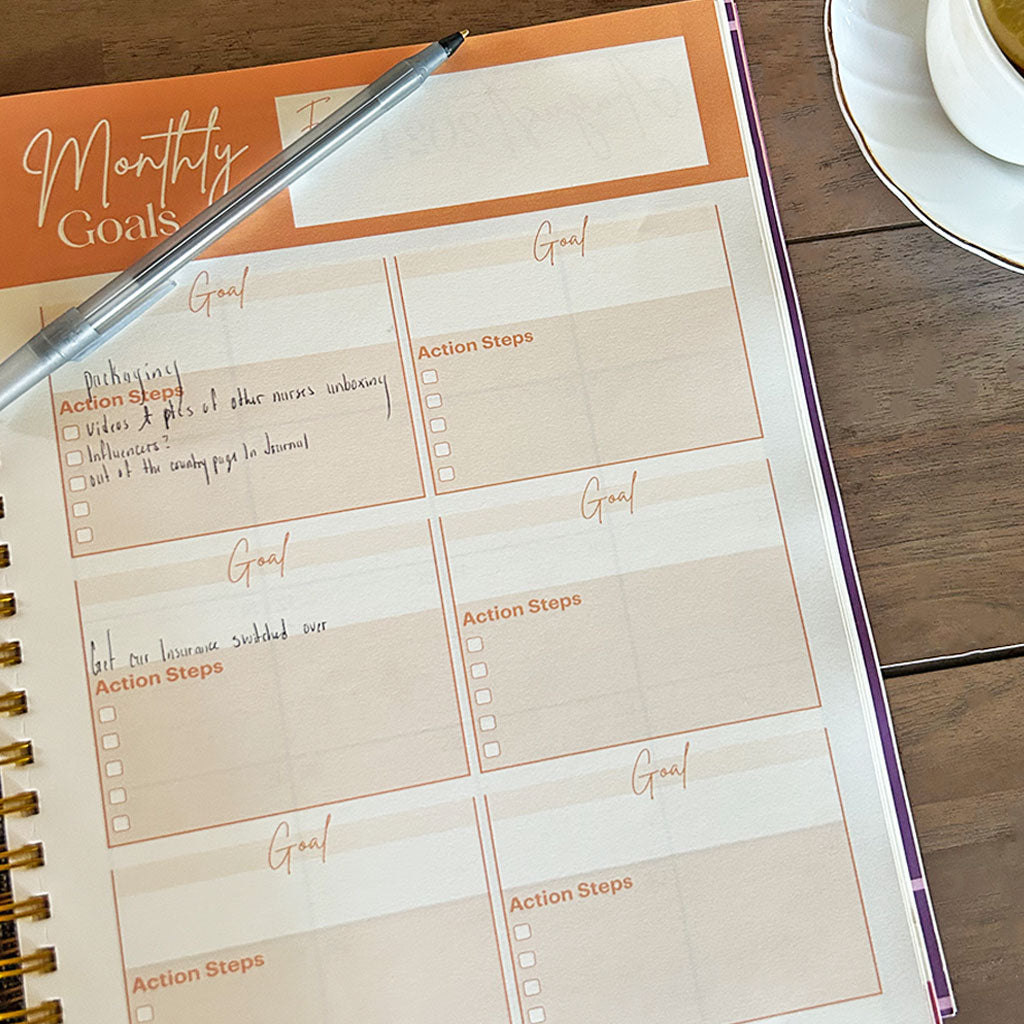 Monthly
Goals
Goal
packaging
Action Steps
videos & pics of other nurses unboxing
Influencers?
out of the country page In Journal
Goal
Action Steps
Goal
Get our Insurance switched over
Action Steps
Goal
Action Steps
Goal
Action Steps
Goal
Action Steps